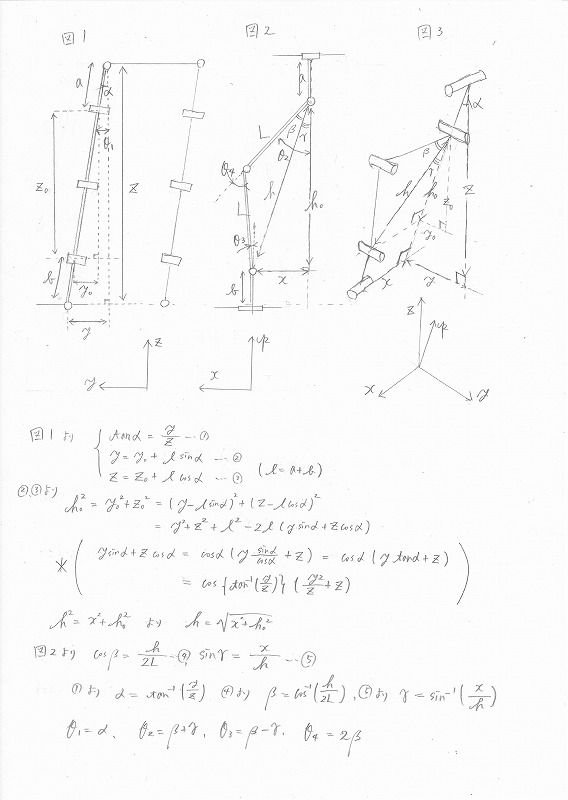 図1
図2
図3
a
α
θ1
z0
z
b
y0
y
z
y
a
L
β
γ
θ2
θ4
h
h0
L
θ3
b
x
x
α
β
γ
h
h0
z
z0
y0
x
y
z
x
y
図1より
tanα = y/z … ①
y = y0 + l sinα … ②
z = z0 + l cosα … ③ (l = a+b)
②,③より
h0² = y0² + z0² = (y - l sinα)² + (z - l cosα)²
= y² + z² + l² - 2l (y sinα + z cosα)
* ( y sinα + z cosα = cosα (y sinα/cosα + z) = cosα (y tanα + z)
= cos{tan⁻¹(y/z)} (y²/z + z) )
h² = x² + h0² より h = √(x² + h0²)
図2より cosβ = h/2L … ④ sinγ = x/h … ⑤
①より α = tan⁻¹(y/z) ④より β = cos⁻¹(h/2L), ⑤より γ = sin⁻¹(x/h)
θ1 = α, θ2 = β+γ, θ3 = β-γ. θ4 = 2β